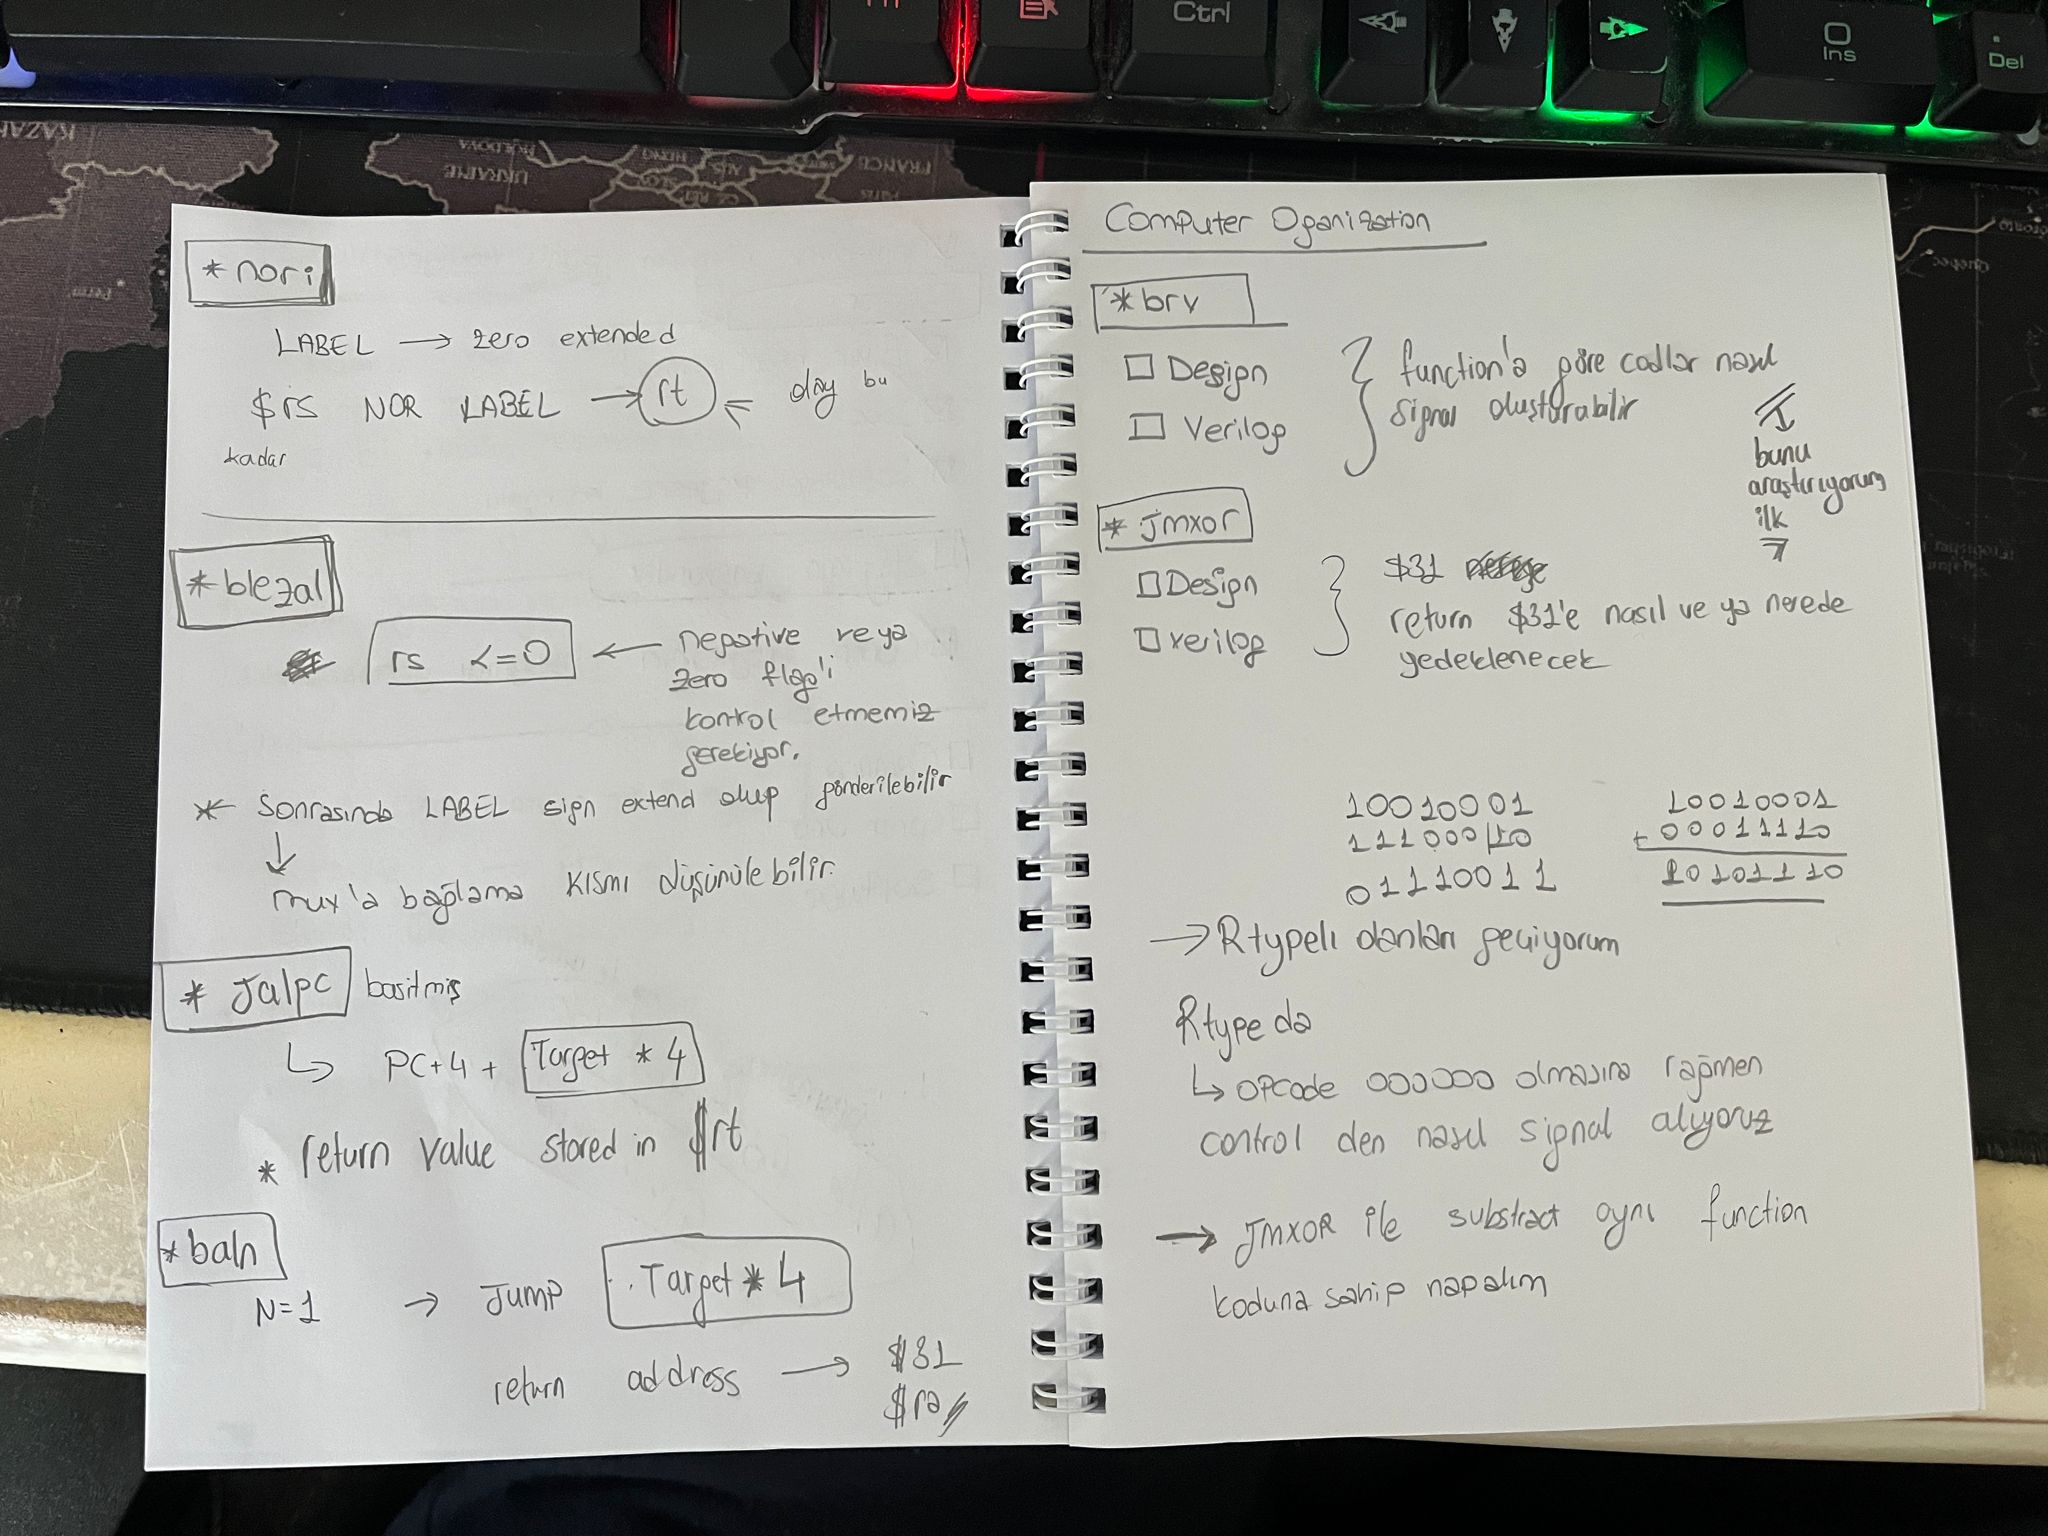 * nori
LABEL → zero extended
$rs NOR LABEL → rt ⇐ olay bu
kadar
* blezal
rs <=0 ← negative veya
zero flag'i
kontrol etmemiz
gerekiyor.
* Sonrasında LABEL sign extend olup gönderilebilir
↓
mux'a bağlama kısmı düşünülebilir.
* Jalpc basitmiş
↳ PC+4 + Target * 4
* return value stored in $rt
* baln
N=1 → Jump Target * 4
return address → $31
$ra
Computer Oganization
* brv
□ Design
□ Verilog
function'a göre codlar nasıl
signal oluşturabilir
bunu
araştırıyorum
ilk
* Jmxor
□ Design
□ Verilog
$31
return $31'e nasıl ve ya nerede
yedeklenecek
10010001
11100010
01110011
10010001
+ 00011110
10101110
→ Rtypelı olanları geçiyorum
Rtype da
↳ OPcode 000000 olmasına rağmen
control den nasıl signal alıyoruz
→ JMXOR ile substract aynı function
koduna sahip napalım
Ctrl
0
Ins
.
Del
KAZAK
MOLDOVA
UKRAINE
FRANCE
Perm
Quebec
Toronto